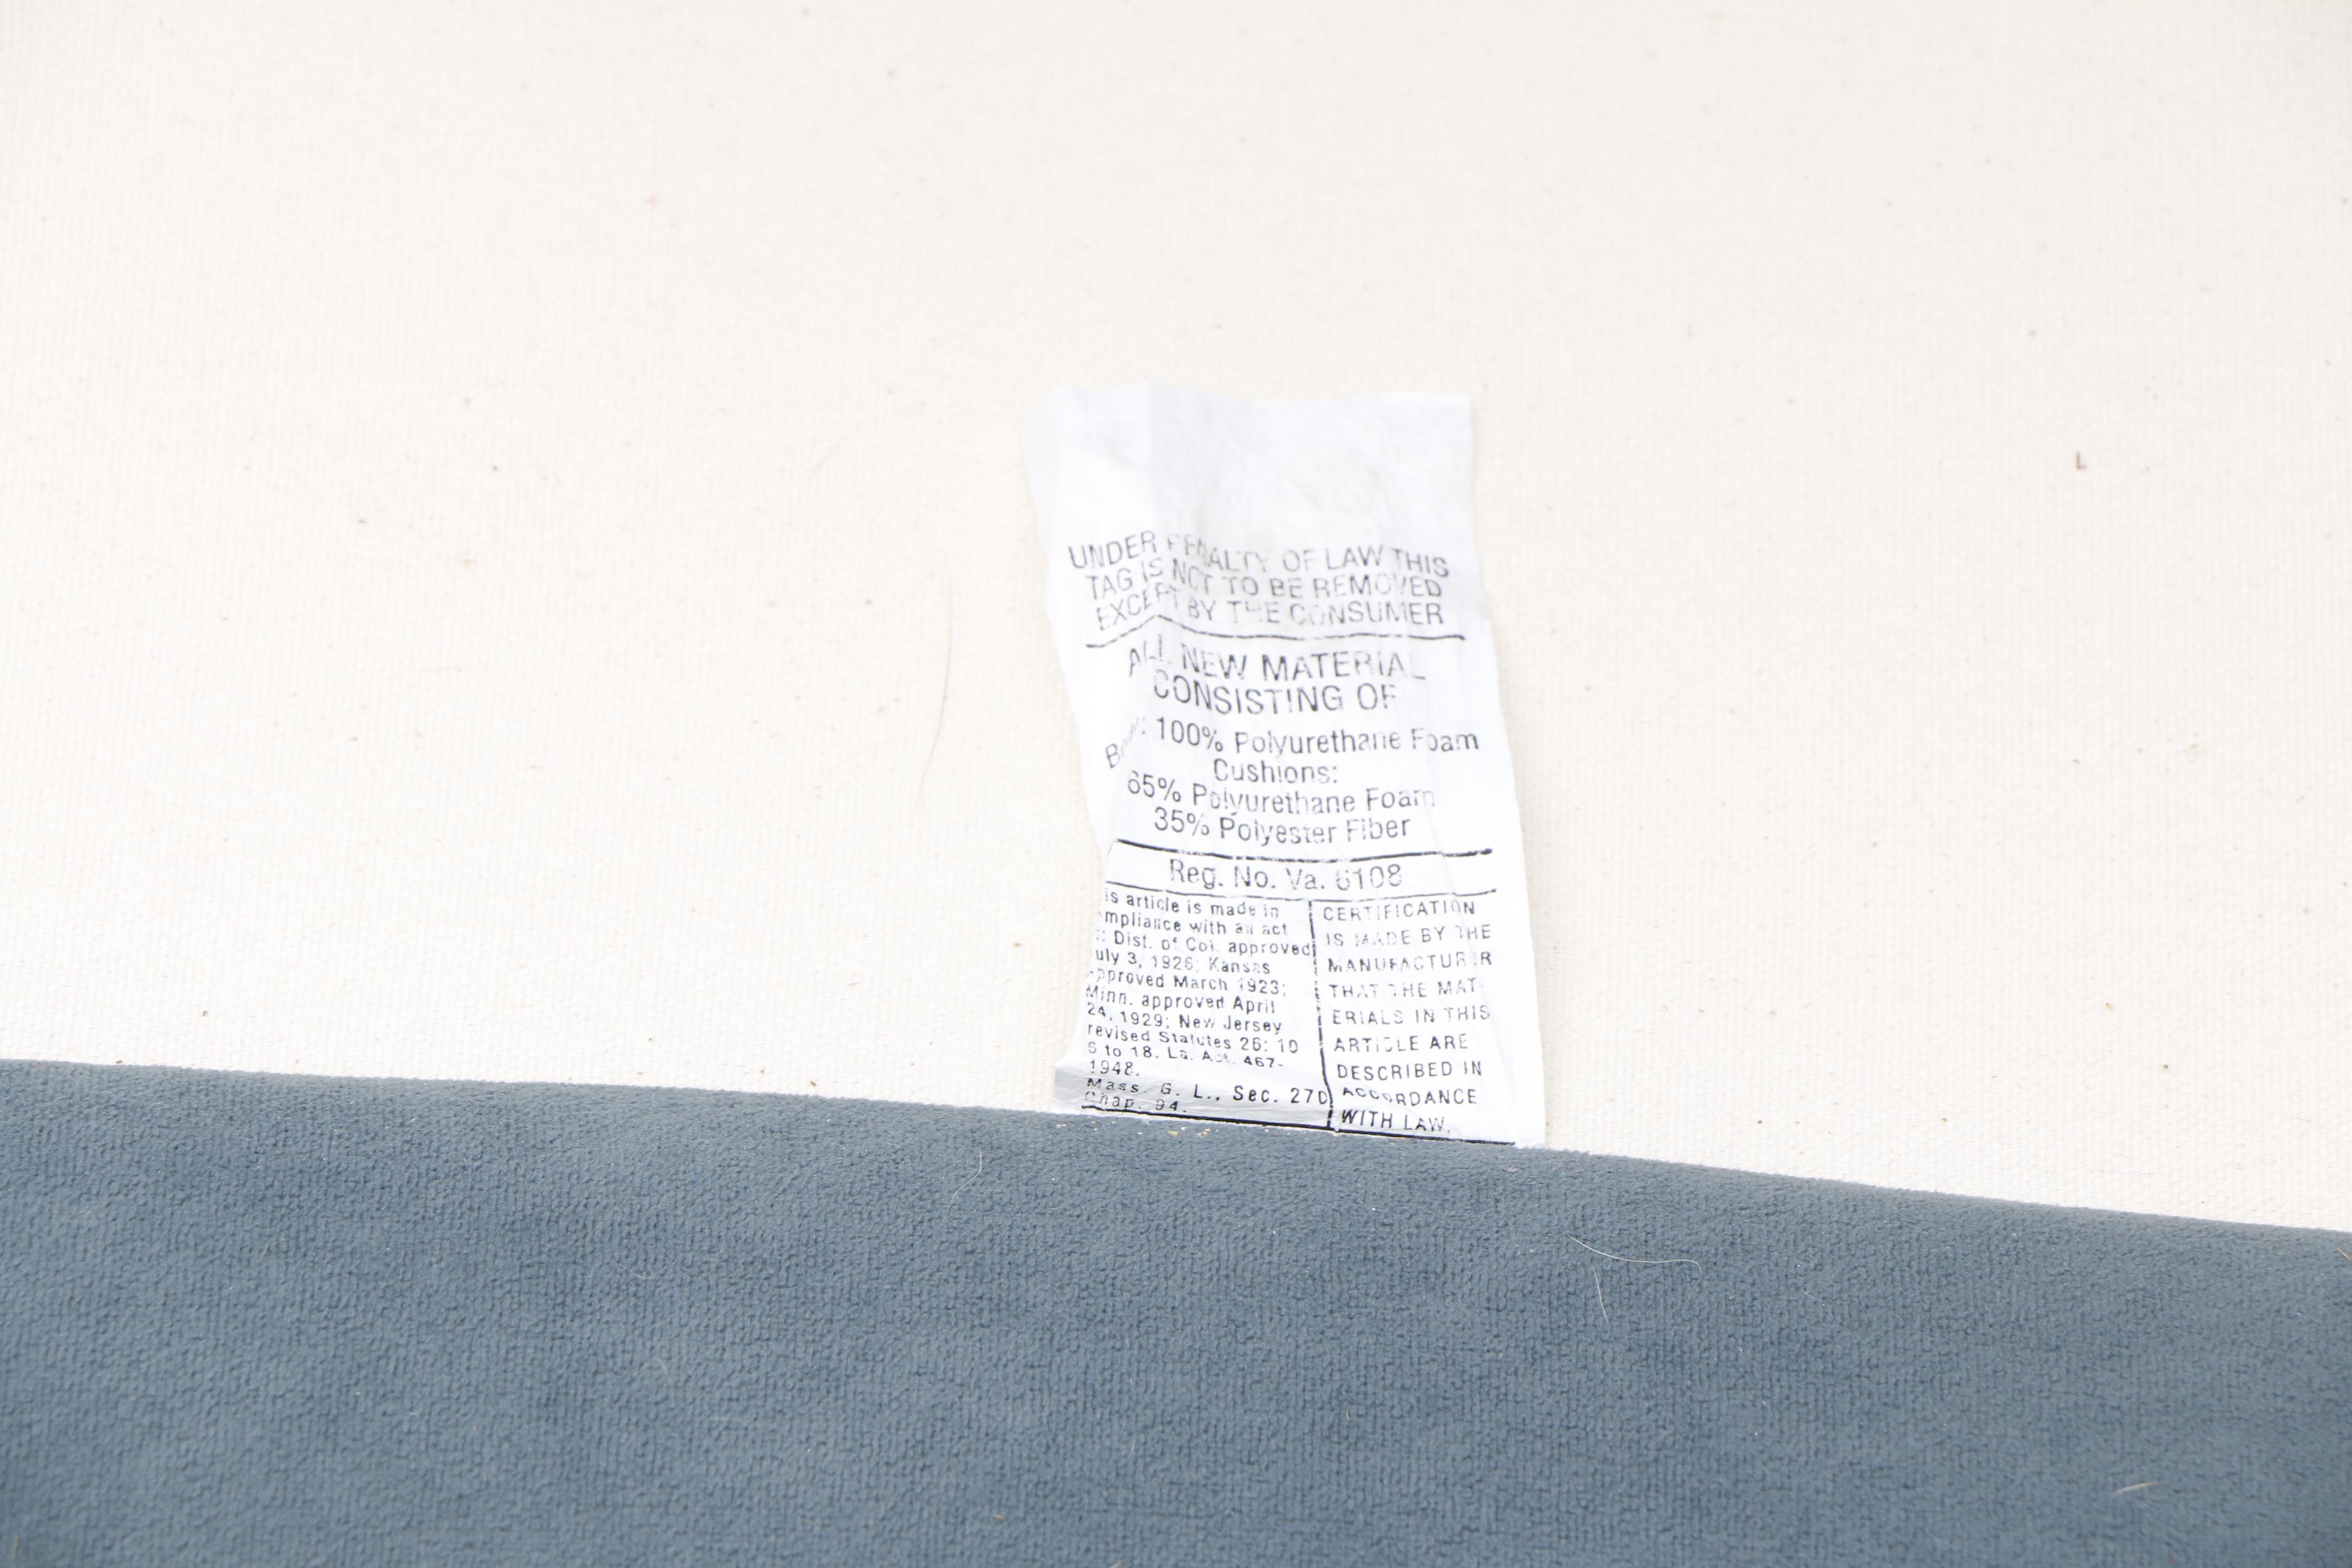 UNDER PENALTY OF LAW THIS
TAG IS NOT TO BE REMOVED
EXCEPT BY THE CONSUMER
ALL NEW MATERIAL
CONSISTING OF
100% Polyurethane Foam
Cushions:
65% Polyurethane Foam
35% Polyester Fiber
Reg. No. Va. 6108
is article is made in
mpliance with an act
: Dist. of Col. approved
uly 3, 1926; Kansas
approved March 1923;
Minn. approved April
24, 1929; New Jersey
revised Statutes 26: 10
6 to 18. La. Act. 467-
1948.
Mass. G. L., Sec. 270
Chap. 94.
CERTIFICATION
IS MADE BY THE
MANUFACTURER
THAT THE MAT-
ERIALS IN THIS
ARTICLE ARE
DESCRIBED IN
ACCORDANCE
WITH LAW.